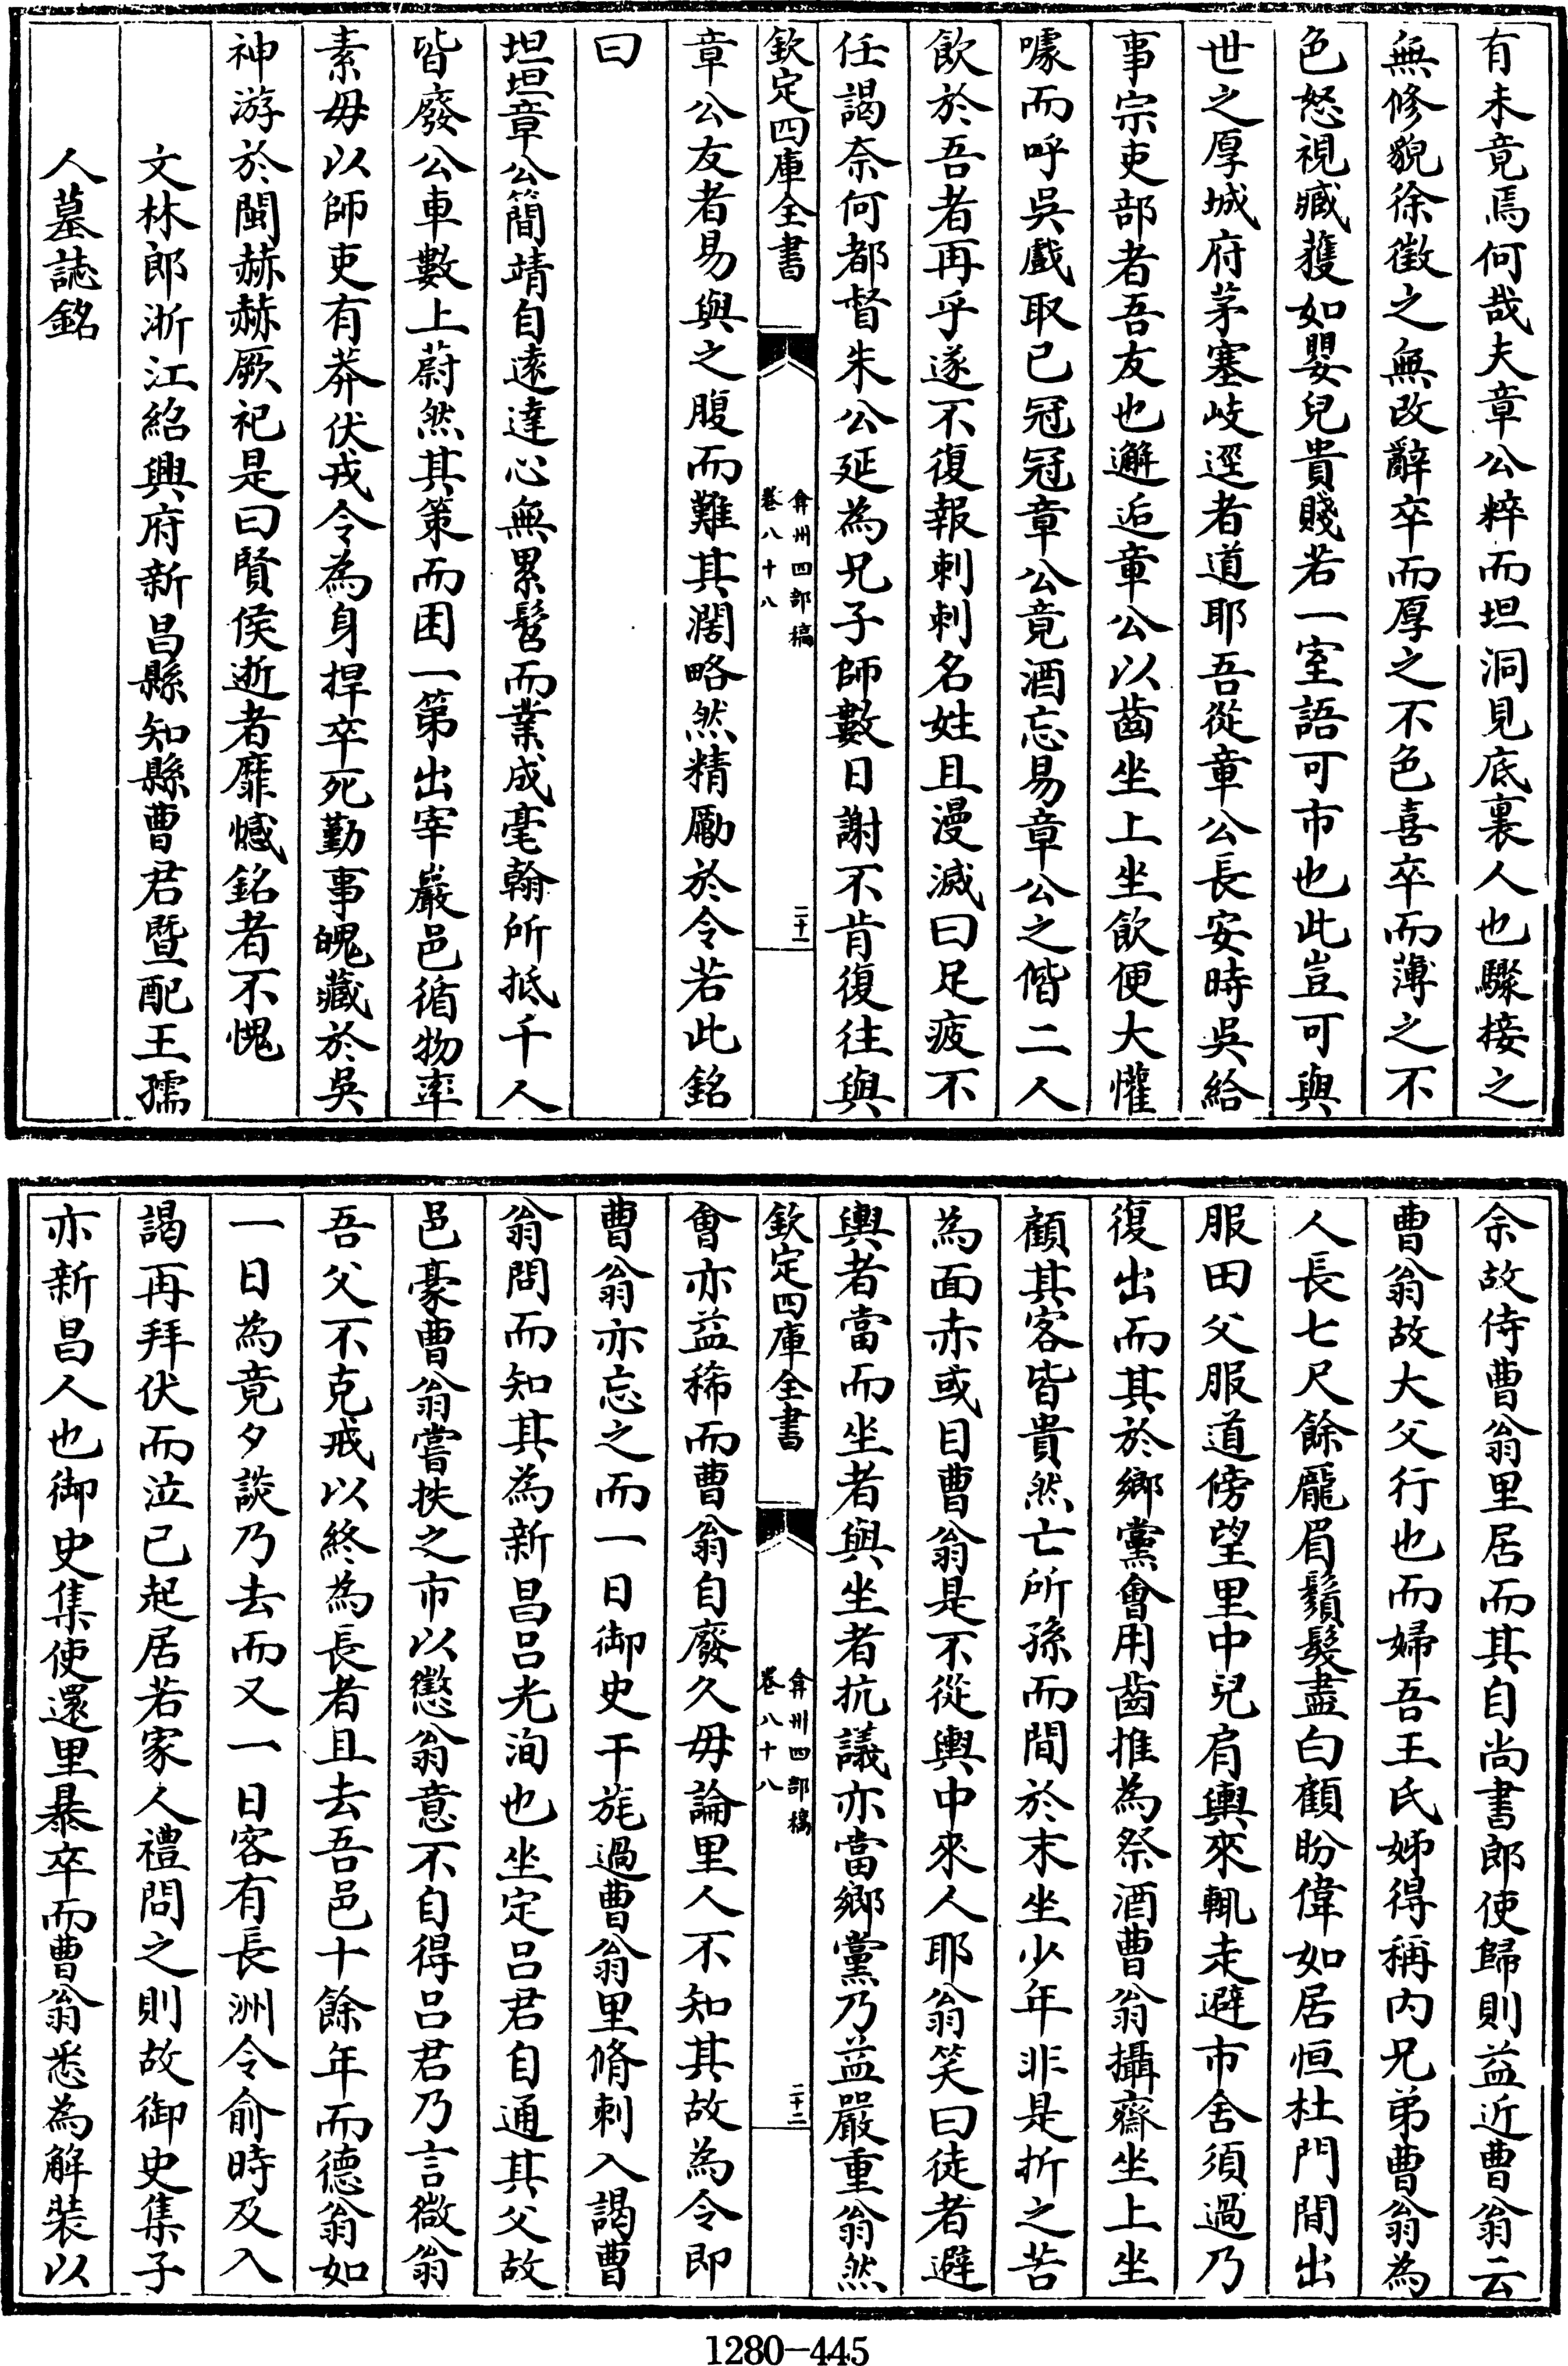 有未竟焉何哉夫章公粹而坦洞見底裏人也驟接之
無修貌徐徵之無改辭卒而厚之不色喜卒而薄之不
色怒視臧獲如嬰兒貴賤若一室語可市也此豈可與
世之厚城府茅塞岐逕者道耶吾從章公長安時吳給
事宗吏部者吾友也邂逅章公以齒坐上坐飲便大懽
噱而呼吳戲取已冠冠章公竟酒忘易章公之偕二人
飲於吾者再乎遂不復報刺刺名姓且漫滅曰足疲不
任謁奈何都督朱公延為兄子師數日謝不肯復往與
欽定四庫全書
弇州四部稿
卷八十八
二十一
章公友者易與之腹而難其濶略然精勵於令若此銘
曰
坦坦章公簡靖自遠達心無累髫而業成毫翰所抵千人
皆廢公車數上蔚然其策而困一第出宰巖邑循物率
素毋以師吏有莽伏戎令為身捍卒死勤事魄藏於吳
神游於閩赫赫厥祀是曰賢侯逝者靡憾銘者不愧
文林郎浙江紹興府新昌縣知縣曹君暨配王孺
人墓誌銘
余故侍曹翁里居而其自尚書郎使歸則益近曹翁云
曹翁故大父行也而婦吾王氏姊得稱内兄弟曹翁為
人長七尺餘龎眉鬚髮盡白顧盼偉如居恒杜門間出
服田父服道傍望里中兒肩輿來輒走避市舍須過乃
復出而其於鄉黨會用齒推為祭酒曹翁攝齋坐上坐
顧其客皆貴然亡所孫而間於末坐少年非是折之苦
為面赤或目曹翁是不從輿中來人耶翁笑曰徒者避
輿者當而坐者與坐者抗議亦當鄉黨乃益嚴重翁然
欽定四庫全書
弇州四部稿
卷八十八
二十二
會亦益稀而曹翁自廢久毋論里人不知其故為令即
曹翁亦忘之而一日御史干旄過曹翁里脩刺入謁曹
翁問而知其為新昌吕光洵也坐定吕君自通其父故
邑豪曹翁嘗抶之市以懲翁意不自得吕君乃言微翁
吾父不克戒以終為長者且去吾邑十餘年而德翁如
一日為竟夕談乃去而又一日客有長洲令俞時及入
謁再拜伏而泣已起居若家人禮問之則故御史集子
亦新昌人也御史集使還里暴卒而曹翁悉為解裝以
1280-445